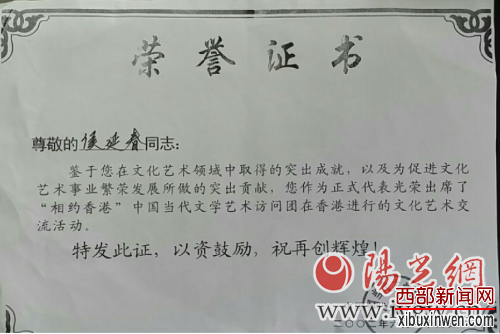 荣誉证书
尊敬的侯延睿同志：
鉴于您在文化艺术领域中取得的突出成就，以及为促进文化
艺术事业繁荣发展所做的突出贡献，您作为正式代表光荣出席了
“相约香港”中国当代文学艺术访问团在香港进行的文化艺术交
流活动。
特发此证，以资鼓励，祝再创辉煌！
陽光網
西部新闻网
xibuxinwen.com